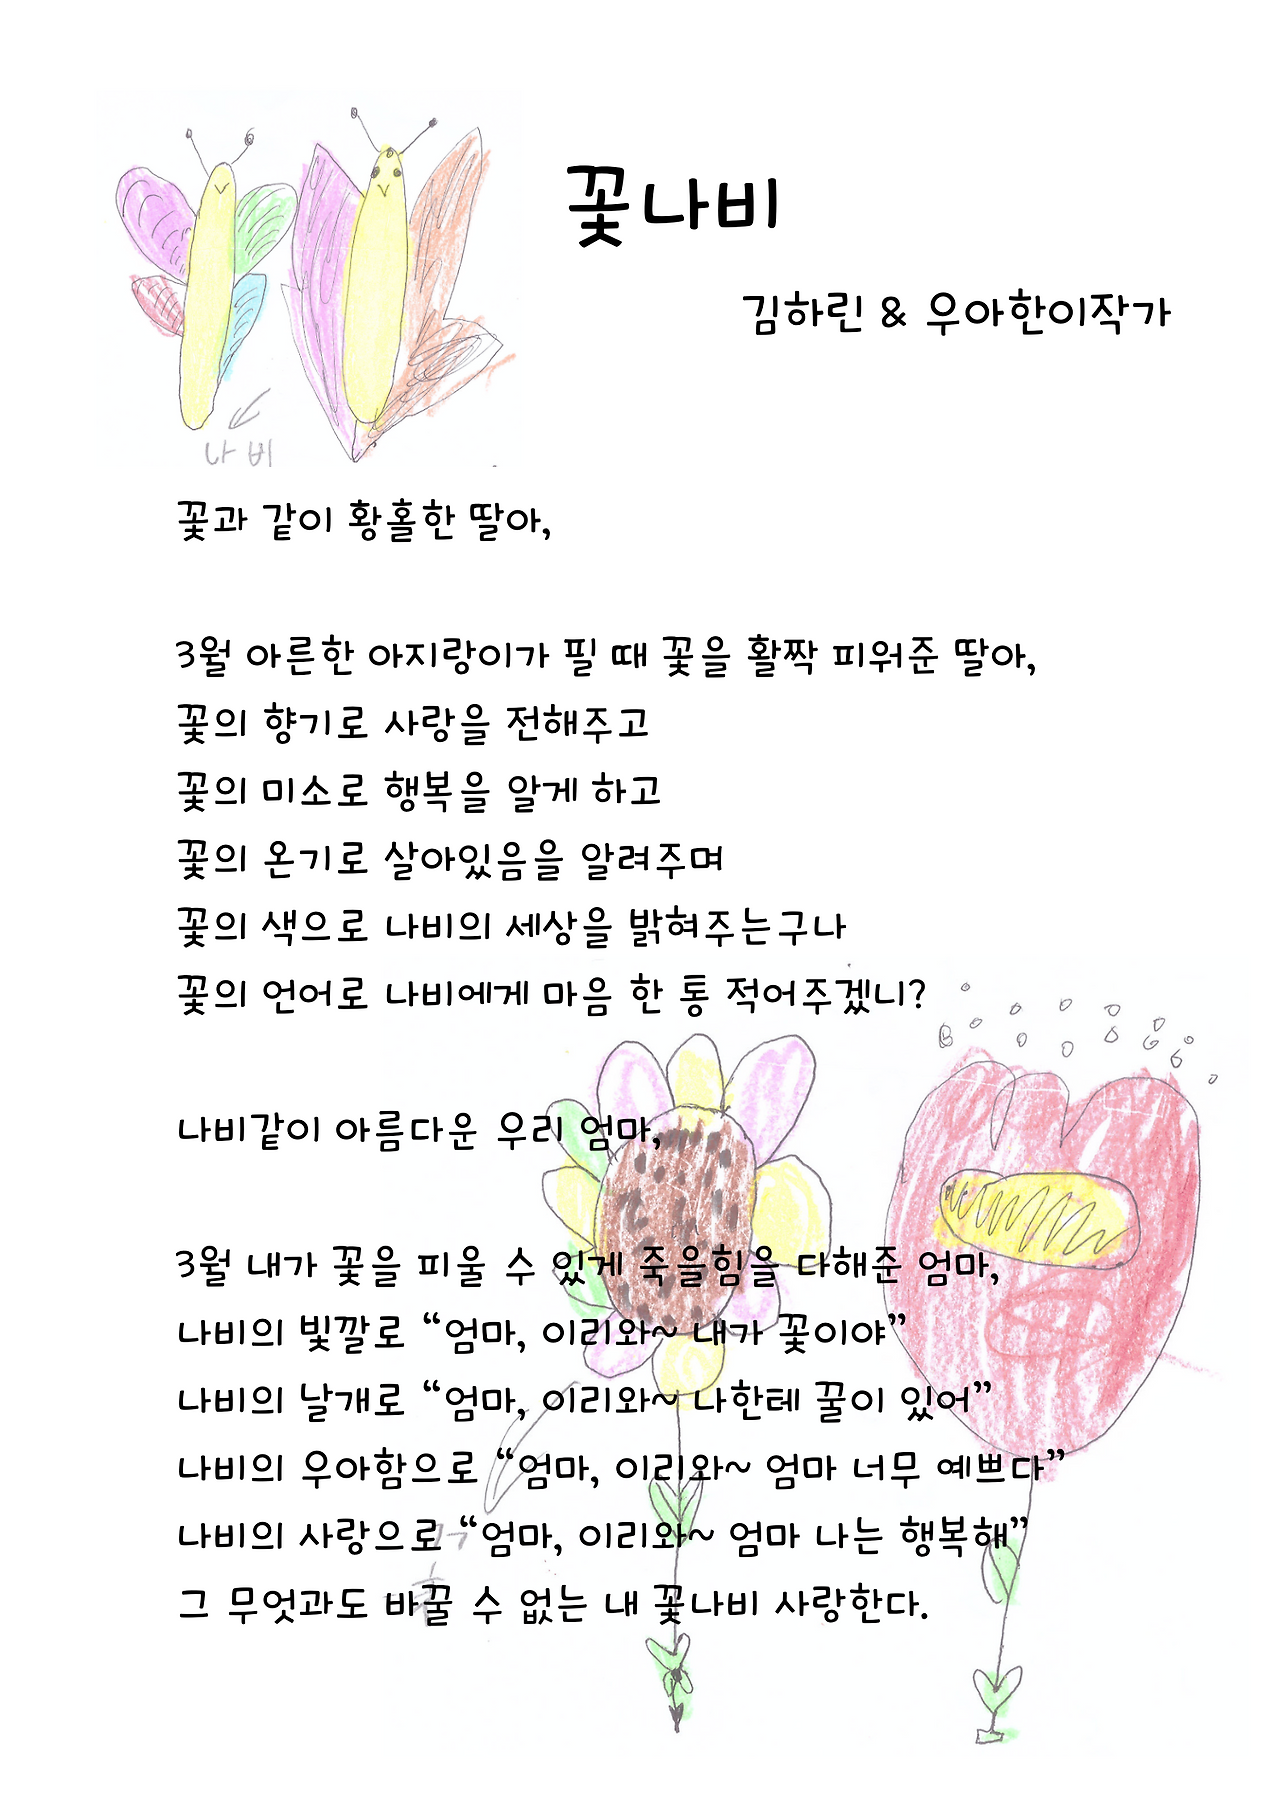 꽃나비
김하린 & 우아한이작가
나비
꽃과 같이 황홀한 딸아,
3월 아른한 아지랑이가 필 때 꽃을 활짝 피워준 딸아,
꽃의 향기로 사랑을 전해주고
꽃의 미소로 행복을 알게 하고
꽃의 온기로 살아있음을 알려주며
꽃의 색으로 나비의 세상을 밝혀주는구나
꽃의 언어로 나비에게 마음 한 통 적어주겠니?
나비같이 아름다운 우리 엄마,
3월 내가 꽃을 피울 수 있게 죽을힘을 다해준 엄마,
나비의 빛깔로 “엄마, 이리와~ 내가 꽃이야”
나비의 날개로 “엄마, 이리와~ 나한테 꿀이 있어”
나비의 우아함으로 “엄마, 이리와~ 엄마 너무 예쁘다”
나비의 사랑으로 “엄마, 이리와~ 엄마 나는 행복해”
그 무엇과도 바꿀 수 없는 내 꽃나비 사랑한다.